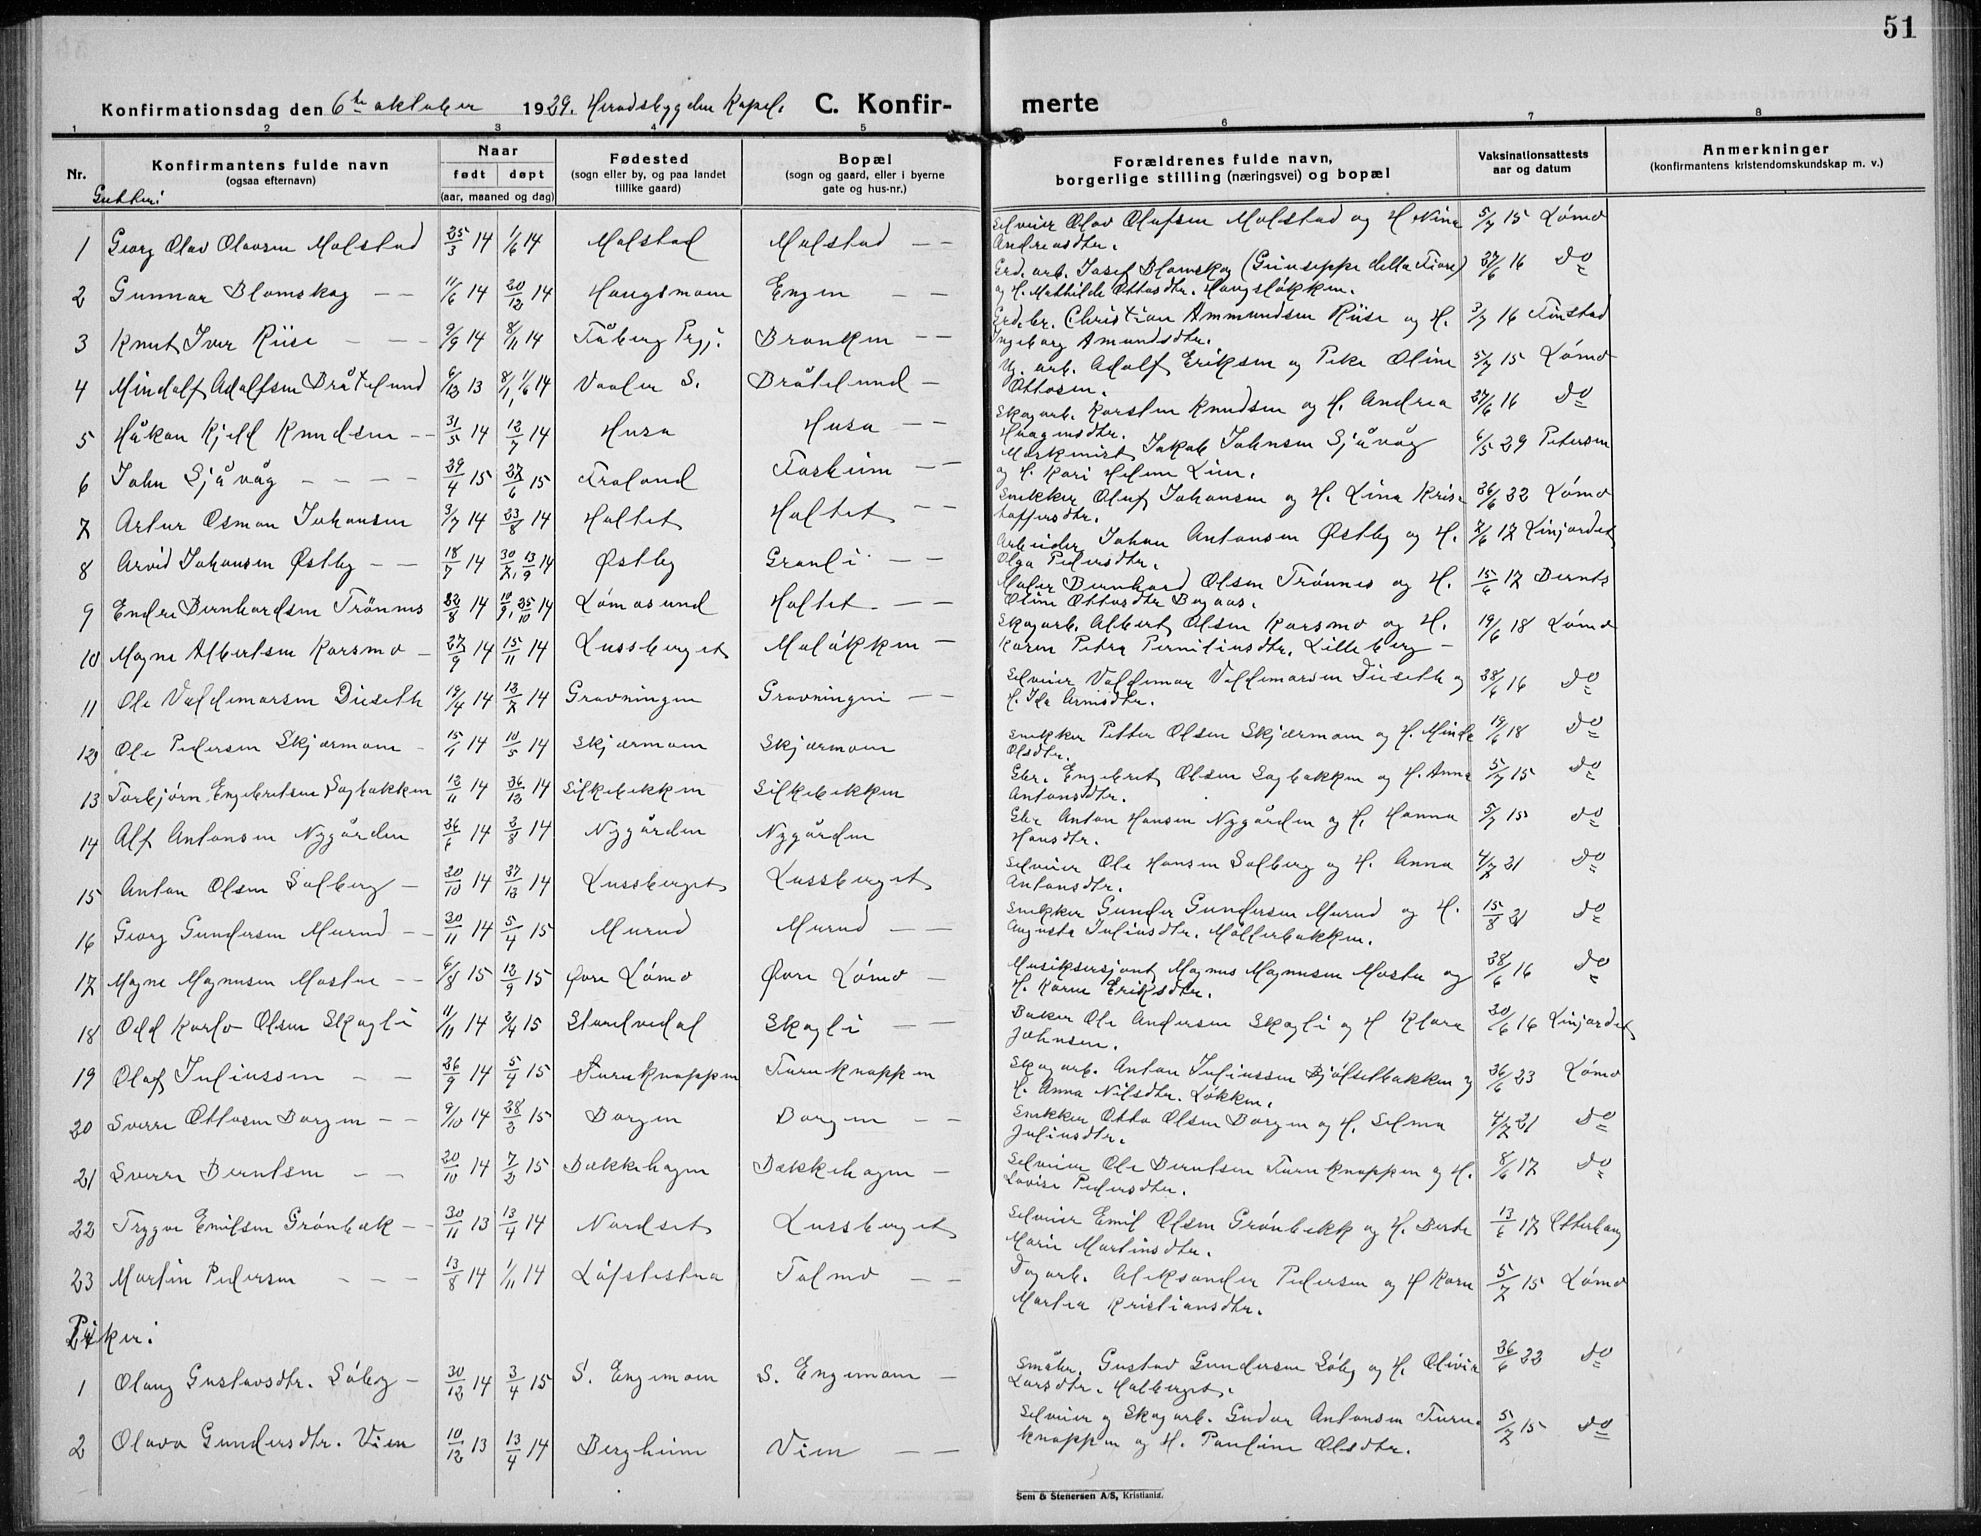 51
Konfirmationsdag den 6te oktober 1929. Heradsbygden Kapel. C. Konfir- merte
1 2 3 4 5 6 7 8
Nr. Konfirmantens fulde navn (ogsaa efternavn)
Naar født døpt (aar, maaned og dag)
Fødested (sogn eller by, og paa landet tillike gaard)
Bopæl (sogn og gaard, eller i byerne gate og hus-nr.)
Forældrenes fulde navn, borgerlige stilling (næringsvei) og bopæl
Vaksinationsattests aar og datum
Anmerkninger (konfirmantens kristendomskundskap m. v.)
Gutter:
1 Georg Olav Olavsen Molstad 25/3 14 1/6 14 Molstad Molstad - - Selveier Olav Olafsen Molstad og H. Nina 5/7 15 Lømo
Andreasdtr.
2 Gunnar Blomskog - - 11/6 14 20/12 14 Haugsmoen Engen - - Grd. arb. Josef Blomskog (Guiseppe della Fiore) 27/6 16 do
og H. Mathilde Ottosdtr. Haugsløkken.
3 Knut Iver Riise - - - 9/9 14 8/11 14 Fåberg Prgj. Bronken - - Grdbr. Christian Ammundsen Riise og H. 3/7 16 Finstad
Ingeborg Amundsdtr.
4 Mindolf Adolfsen Bråtelund 6/12 13 8/1, 1/6 14 Vaaler S. Bråtelund - Ug. arb. Adolf Eriksen og Pike Oline 5/7 15 Lømo
Ottosen.
5 Håkon Kjeld Knudsen - - 31/5 14 12/7 14 Husa Husa - - Skogarb. Karsten Knudsen og H. Andrea 27/6 16 do
Haagensdtr.
6 John Sjåvåg - - - - 29/4 15 27/6 15 Froland Forheim - - Maskinist Jakob Johnsen Sjåvåg 6/5 29 Petersen
og H. Kari Helene Lien.
7 Artur Osman Johansen 3/7 14 23/8 14 Haltet Haltet - - Snekker Oluf Johansen og H. Lina Kris- 26/6 22 Lømo
toffersdtr.
8 Arvid Johansen Østby - - 18/7 14 30/7, 13/9 14 Østby Granli - - Arbeider Johan Antonsen Østby og H. 7/6 17 Linjordet
Olga Pedersdtr.
9 Endre Bernhardsen Trønnes 22/8 14 10/9, 25/10 14 Lømosund Haltet - - Maler Bernhard Olsen Trønnes og H. 15/6 17 Bernts
Oline Ottosdtr Bergaas.
10 Magne Albertsen Karsmo - 27/9 14 15/11 14 Lussberget Moløkken - Skogarb. Albert Olsen Karsmo og H. 19/6 18 Lømo
Karen Petra Perniliusdtr. Lilleberg -
11 Ole Valdemarsen Diseth 19/4 14 12/7 14 Gravningen Gravningen - - Selveier Valdemar Valdemarsen Diseth og 28/6 16 do
H. Ida Arnesdtr.
12 Ole Pedersen Skjærmoen - 15/1 14 10/5 14 Skjærmoen Skjærmoen Snekker Petter Olsen Skjærmoen og H. Minda 19/6 18 do
Olsdtr.
13 Torbjørn Engebretsen Sagbakken 12/11 14 26/12 14 Silkebekken Silkebekken Gbr. Engebret Olsen Sagbakken og H. Anna 5/7 15 do
Antonsdtr.
14 Alf Antonsen Nygården 26/6 14 2/8 14 Nygården Nygården Gbr Anton Hansen Nygården og H. Hanna 5/7 15 do
Hansdtr.
15 Anton Olsen Solberg - 20/10 14 27/12 14 Lussberget Lussberget Selveier Ole Hansen Solberg og H. Anna 4/7 21 do
Antonsdtr.
16 Georg Gundersen Murud - - 30/11 14 5/4 15 Murud Murud - - Snekker Gunder Gundersen Murud og H. 15/8 21 do
Augusta Juliusdtr. Møllerbakken.
17 Magne Magnusen Mostue - - 6/8 15 12/9 15 Øvre Lømo Øvre Lømo - Musiksersjant Magnus Magnusen Mostue og 28/6 16 do
H. Karen Eriksdtr.
18 Odd Karlo Olsen Skogli 11/11 14 2/4 15 Storelvedal Skogli - - Baker Ole Andersen Skogli og H Klara 20/6 16 Linjordet
Johnsen.
19 Olaf Juliussen - - 26/9 14 5/4 15 Furuknappen Furuknappen Skogarb. Anton Juliussen Bjølsetbakken og 26/6 23 Lømo
H. Anna Nilsdtr. Løkken.
20 Sverre Ottosen Borgen - - 9/10 14 28/2 15 Borgen Borgen - - Snekker Otto Olsen Borgen og H. Selma 4/7 21 do
Juliusdtr.
21 Sverre Berntsen - - 20/10 14 7/2 15 Bækkehagen Bækkehagen - Selveier Ole Berntsen Furuknappen og H. 8/6 17 do
Lovise Pedersdtr.
22 Trygve Emilsen Grønbæk - - 30/11 13 13/4 14 Nordset Lussberget Selveier Emil Olsen Grønbekk og H. Berte 13/6 17 Otterhaug
Marie Martinsdtr.
23 Martin Pedersen - - - 13/8 14 1/11 14 Løfsletstua Tolmo - - Dagarb. Aleksander Pedersen og H Karen 5/7 15 Lømo
Martea Kristiansdtr.
Piker:
1 Olaug Gustavsdtr. Søby - 30/12 14 3/4 15 S. Engemoen S. Engemoen - Småbr. Gustav Gundersen Søby og H. Olivia 26/6 22 do
Larsdtr. Halberget.
2 Olava Gundersdtr. Vien 10/12 13 13/4 14 Bergheim Vien - - Selveier og Skogarb. Gudar Antonsen Furu- 5/7 15 do
knappen og H. Pauline Olsdtr.
Sem & Stenersen A/S, Kristiania.